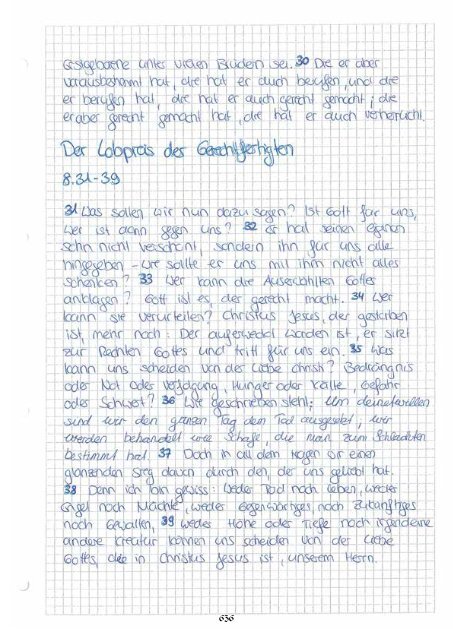 Erstgeborene unter vielen Brüdern sei. 30 Die er aber
vorausbestimmt hat, die hat er auch berufen, und die
er berufen hat, die hat er auch gerecht gemacht; die
er aber gerecht gemacht hat, die hat er auch verherrlicht.
Der Lobpreis des Gerechtfertigten
8.31-39
31 Was sollen wir nun dazu sagen? Ist Gott für uns,
wer ist dann gegen uns? 32 er hat seinen eigenen
Sohn nicht verschont, sondern ihn für uns alle
hingegeben - wie sollte er uns mit ihm nicht alles
schenken? 33 Wer kann die Auserwählten Gottes
anklagen? Gott ist es, der gerecht macht. 34 Wer
kann sie verurteilen? Christus Jesus, der gestorben
ist, mehr noch: Der auferweckt worden ist, er sitzt
zur Rechten Gottes und tritt für uns ein. 35 Was
kann uns scheiden von der Liebe Christi? Bedrängnis
oder Not oder Verfolgung, Hunger oder Kälte, Gefahr
oder Schwert? 36 Wie geschrieben steht: Um deinetwillen
sind wir den ganzen Tag dem Tod ausgesetzt, wir
werden behandelt wie Schafe, die man zum Schlachten
bestimmt hat. 37 Doch in all dem tragen wir einen
glänzenden Sieg davon durch den, der uns geliebt hat.
38 Denn ich bin gewiss: Weder Tod noch Leben, weder
Engel noch Mächte, weder Gegenwärtiges noch Zukünftiges
noch Gewalten, 39 weder Höhe oder Tiefe noch irgendeine
andere Kreatur können uns scheiden von der Liebe
Gottes, die in Christus Jesus ist, unserem Herrn.
636